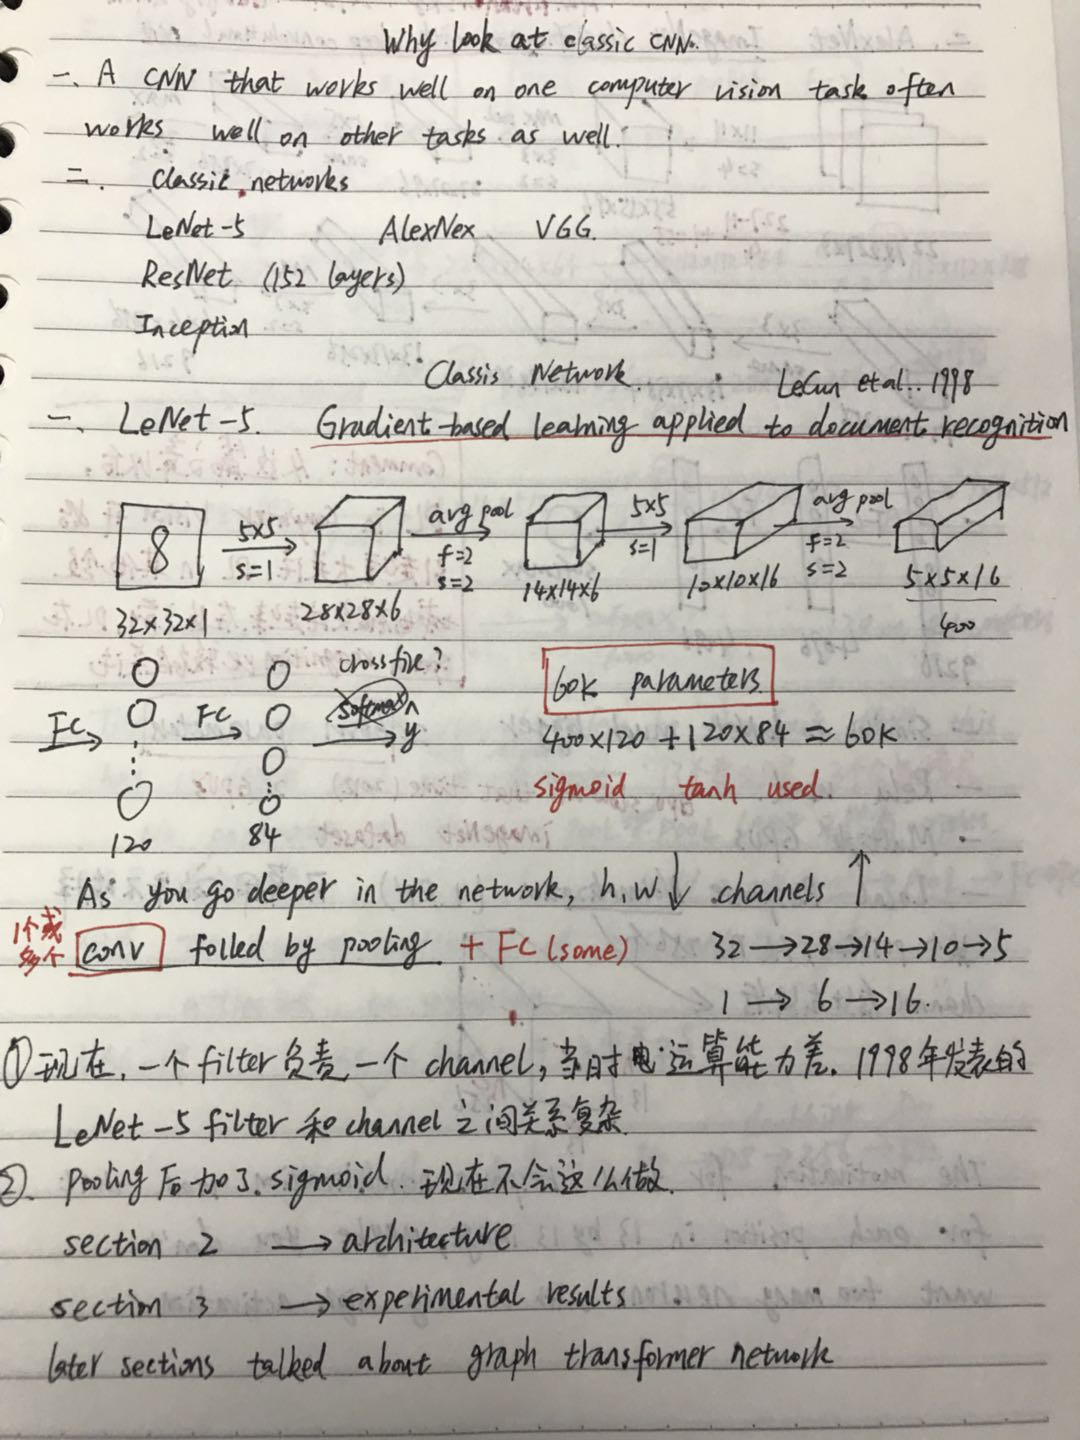 Why look at classic CNN.
一. A CNN that works well on one computer vision task often
works well on other tasks as well.
二. Classic networks
LeNet-5 AlexNex VGG.
ResNet (152 layers)
Inception
Classis Network. LeCun et al.. 1998
一. LeNet-5. Gradient-based learning applied to document recognition
8 5×5 s=1 avg pool f=2 s=2 5×5 s=1 avg pool f=2 s=2
32×32×1 28×28×6 14×14×6 10×10×16 5×5×16
400
FC FC crossfire? softmax ŷ
120 84
60k parameters
400×120 + 120×84 ≈ 60k
sigmoid tanh used.
As you go deeper in the network, h, w ↓ channels ↑
1个或
多个 conv folled by pooling + FC (some) 32 → 28 → 14 → 10 → 5
1 → 6 → 16.
① 现在, 一个 filter 负责一个 channel, 当时电运算能力差. 1998年发表的
LeNet-5 filter 和 channel 之间关系复杂.
②. pooling 后加了. sigmoid. 现在不会这么做.
section 2 → architecture
section 3 → experimental results.
later sections talked about graph transformer network